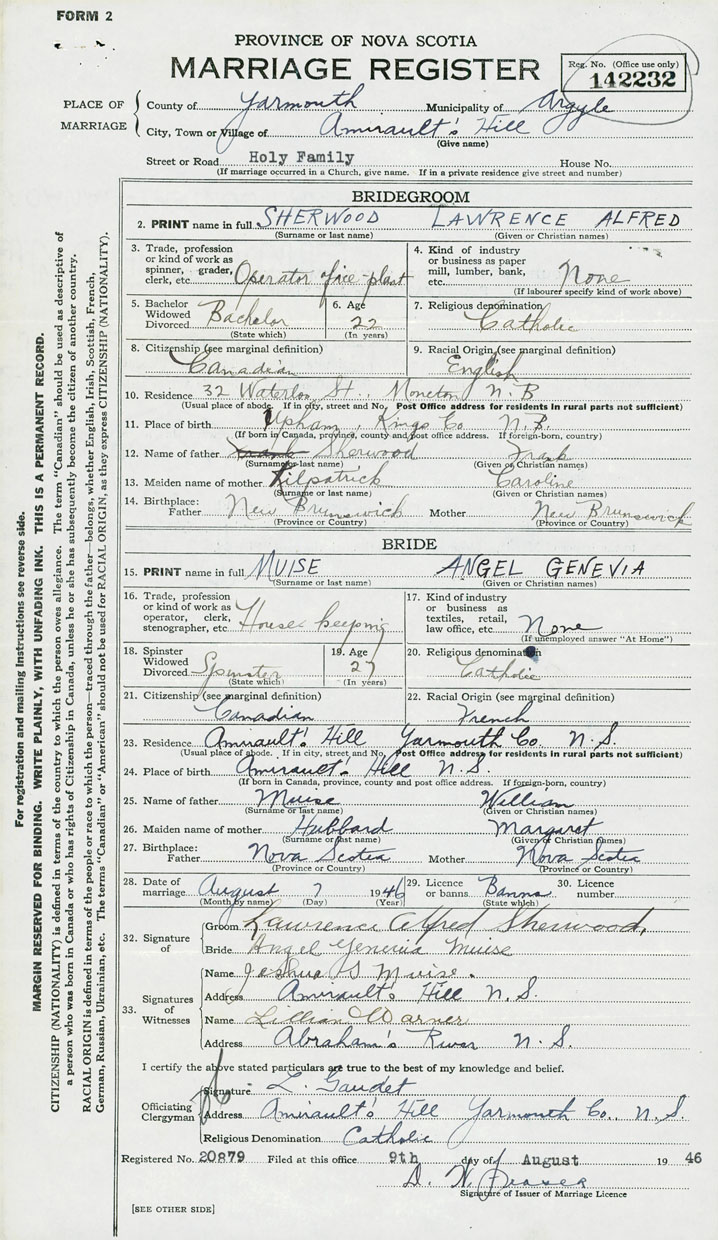 FORM 2
PROVINCE OF NOVA SCOTIA
MARRIAGE REGISTER
Reg. No. (Office use only)
142232
PLACE OF MARRIAGE
County of Yarmouth Municipality of Argyle
City, Town or Village of Amirault's Hill
(Give name)
Street or Road Holy Family House No.
(If marriage occurred in a Church, give name. If in a private residence give street and number)
BRIDEGROOM
2. PRINT name in full SHERWOOD LAWRENCE ALFRED
(Surname or last name) (Given or Christian names)
3. Trade, profession or kind of work as spinner, grader, clerk, etc. Operator of ice-plant
4. Kind of industry or business as paper mill, lumber, bank, etc. None
(If labourer specify kind of work above)
5. Bachelor Widowed Divorced Bachelor
(State which)
6. Age 22
(In years)
7. Religious denomination
Catholic
8. Citizenship (see marginal definition)
Canadian
9. Racial Origin (see marginal definition)
English
10. Residence 32 Waterloo St., Moncton N.B
(Usual place of abode. If in city, street and No. Post Office address for residents in rural parts not sufficient)
11. Place of birth Upham, Kings Co N.B.
(If born in Canada, province, county and post office address. If foreign-born, country)
12. Name of father Frank Sherwood Frank
(Surname or last name) (Given or Christian names)
13. Maiden name of mother Kilpatrick Caroline
(Surname or last name) (Given or Christian names)
14. Birthplace: Father New Brunswick Mother New Brunswick
(Province or Country) (Province or Country)
BRIDE
15. PRINT name in full MUISE ANGEL GENEVIA
(Surname or last name) (Given or Christian names)
16. Trade, profession or kind of work as operator, clerk, stenographer, etc. House keeping
17. Kind of industry or business as textiles, retail, law office, etc. None
(If unemployed answer "At Home")
18. Spinster Widowed Divorced Spinster
(State which)
19. Age 27
(In years)
20. Religious denomination
Catholic
21. Citizenship (see marginal definition)
Canadian
22. Racial Origin (see marginal definition)
French
23. Residence Amirault's Hill Yarmouth Co. N.S.
(Usual place of abode. If in city, street and No. Post Office address for residents in rural parts not sufficient)
24. Place of birth Amirault's Hill N.S.
(If born in Canada, province, county and post office address. If foreign-born, country)
25. Name of father Muise William
(Surname or last name) (Given or Christian names)
26. Maiden name of mother Hubbard Margaret
(Surname or last name) (Given or Christian names)
27. Birthplace: Father Nova Scotia Mother Nova Scotia
(Province or Country) (Province or Country)
28. Date of marriage August 7 1946 29. Licence or banns Banns 30. Licence number
(Month by name) (Day) (Year) (State which)
32. Signature of
Groom Lawrence Alfred Sherwood.
Bride Angel Genevia Muise
33. Signatures of Witnesses
Name Joshua S Muise.
Address Amirault's Hill N.S.
Name Lillian Warner
Address Abraham's River N.S.
I certify the above stated particulars are true to the best of my knowledge and belief.
Officiating Clergyman
Signature L. Gaudet
Address Amirault's Hill Yarmouth Co. N.S.
Religious Denomination Catholic
Registered No. 20879 Filed at this office 9th day of August 19 46
D. W. Fraser
Signature of Issuer of Marriage Licence
[SEE OTHER SIDE]
For registration and mailing instructions see reverse side.
MARGIN RESERVED FOR BINDING. WRITE PLAINLY, WITH UNFADING INK. THIS IS A PERMANENT RECORD.
CITIZENSHIP (NATIONALITY) is defined in terms of the country to which the person owes allegiance. The term "Canadian" should be used as descriptive of
a person who was born in Canada or who has rights of Citizenship in Canada, unless he or she has subsequently become the citizen of another country.
RACIAL ORIGIN is defined in terms of the people or race to which the person—traced through the father—belongs, whether English, Irish, Scottish, French,
German, Russian, Ukrainian, etc. The terms "Canadian" or "American" should not be used for RACIAL ORIGIN, as they express CITIZENSHIP (NATIONALITY).